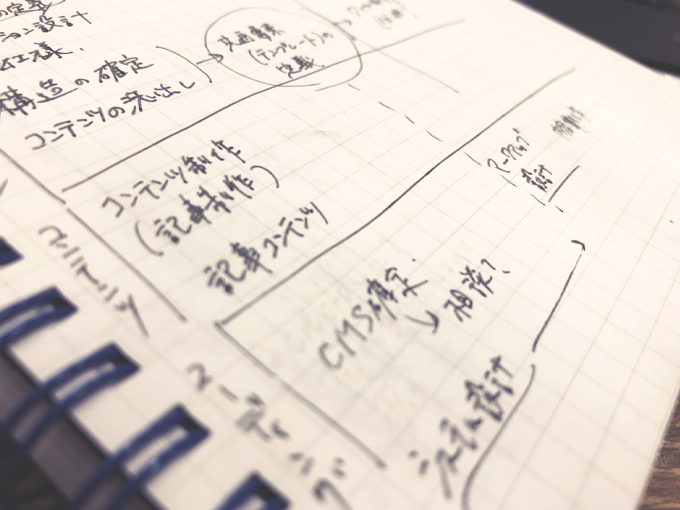 の定義
ション設計
仕様.
構造の確定
コンテンツの洗い出し
(テンプレート)の
定義
コンテンツ制作
(記事制作)
記事コンテンツ
コンテンツ
マークアップ
設計
CMS確定.
相談?
システム設計
コーディング